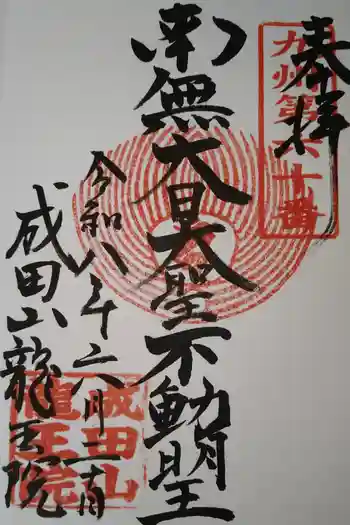 奉拝
九州第六十番
南無大日大聖不動明王
令和八年六月二日
成田山龍王院
成田山
龍王院